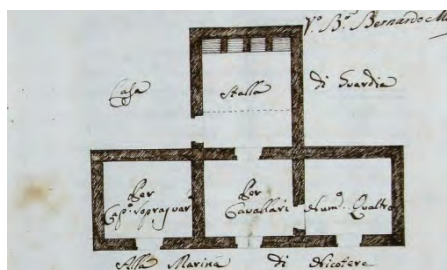 V.º B.º Bernardo M
Casa Stalla di Guardia
Per Cavallari
Num.º Quattro
Alla Marina di Nicotera